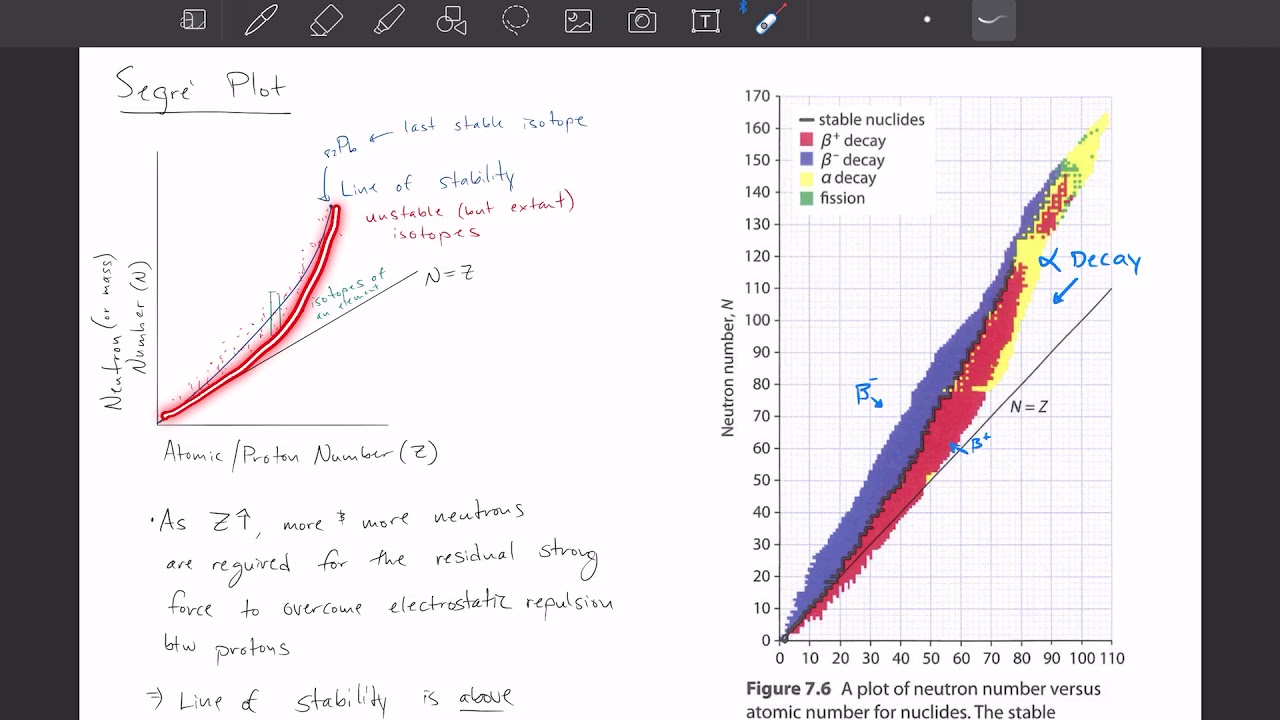 T
Segré Plot
₈₂Pb ← last stable isotope
Line of stability
unstable (but extant)
isotopes
N=Z
isotopes of
an element
Neutron (or mass)
Number (N)
Atomic/Proton Number (Z)
• As Z↑, more & more neutrons
are required for the residual strong
force to overcome electrostatic repulsion
btw protons
⇒ Line of stability is above
170
160
150
140
130
120
110
100
90
80
70
60
50
40
30
20
10
0
Neutron number, N
stable nuclides
β⁺ decay
β⁻ decay
α decay
fission
α Decay
β⁻
N = Z
β⁺
0 10 20 30 40 50 60 70 80 90 100 110
Figure 7.6 A plot of neutron number versus
atomic number for nuclides. The stable